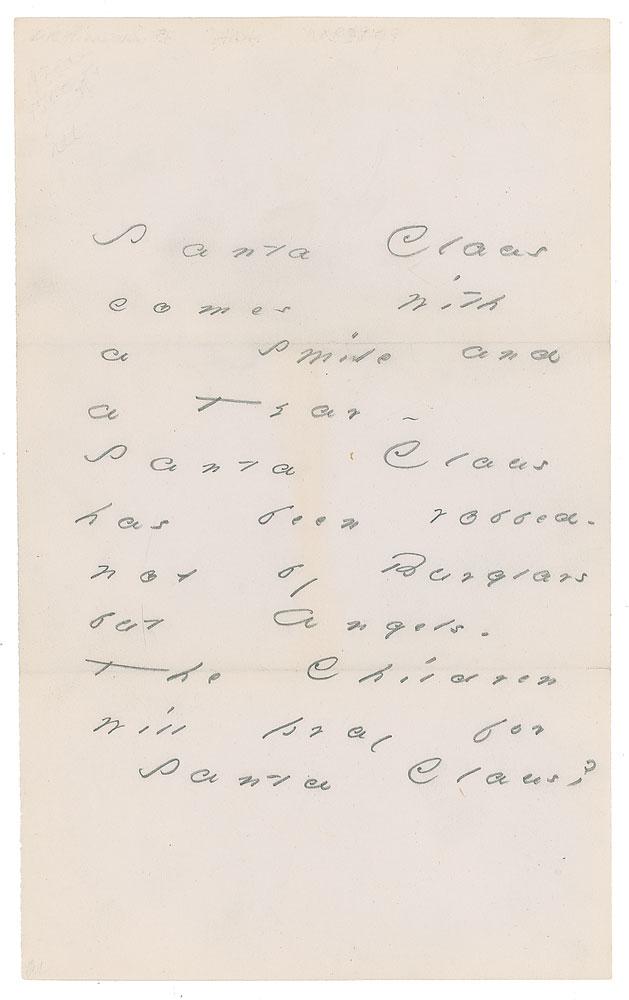 Santa Claus
comes with
a Smile and
a Tear -
Santa Claus
has been robbed.
not by Burglars
but Angels.
The Children
will pray for
Santa Claus?